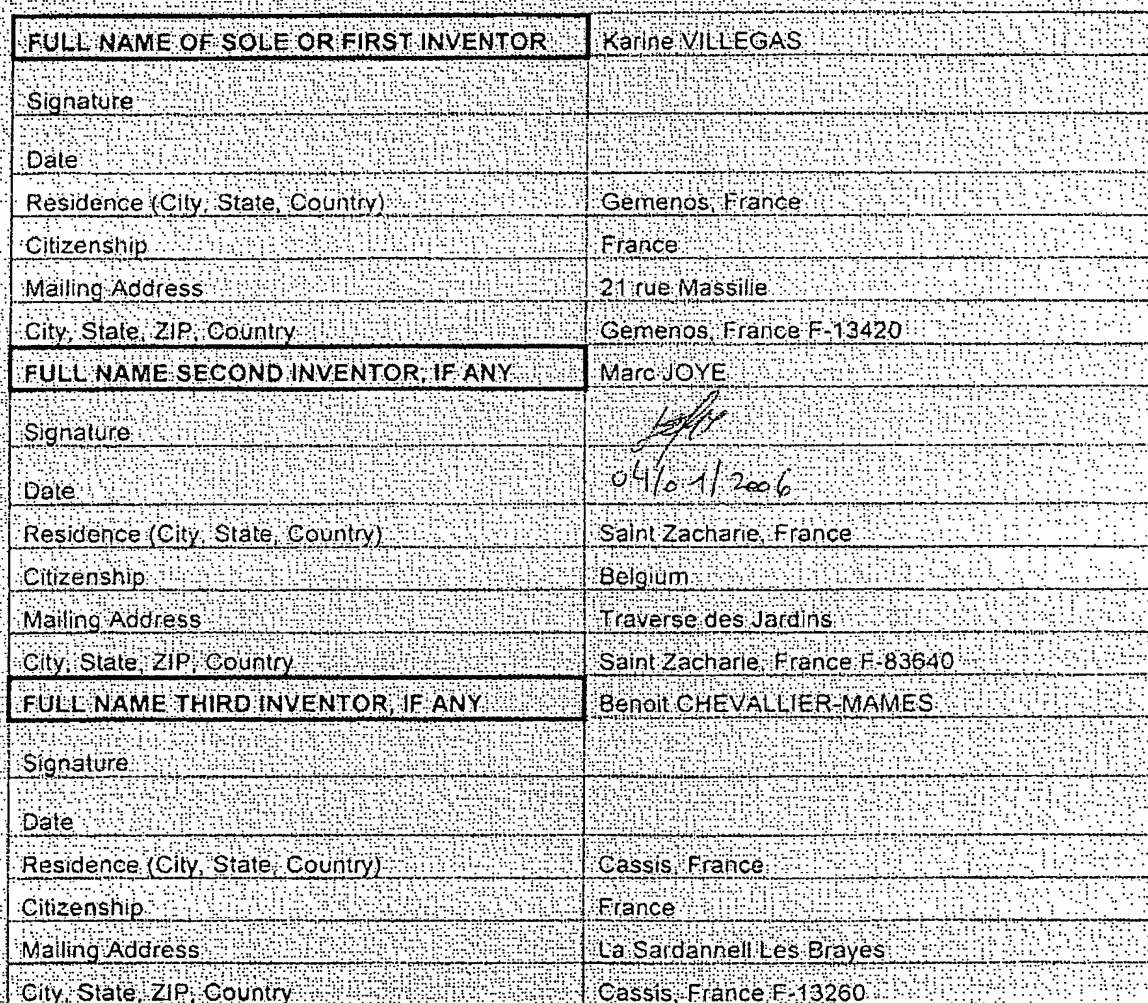 FULL NAME OF SOLE OR FIRST INVENTOR Karine VILLEGAS
Signature
Date
Residence (City, State, Country) Gemenos, France
Citizenship France
Mailing Address 21 rue Massilie
City, State, ZIP, Country Gemenos, France F-13420
FULL NAME SECOND INVENTOR, IF ANY Marc JOYE
Signature
Date 04/01/2006
Residence (City, State, Country) Saint Zacharie, France
Citizenship Belgium
Mailing Address Traverse des Jardins
City, State, ZIP, Country Saint Zacharie, France F-83640
FULL NAME THIRD INVENTOR, IF ANY Benoit CHEVALLIER-MAMES
Signature
Date
Residence (City, State, Country) Cassis, France
Citizenship France
Mailing Address La Sardannell Les Brayes
City, State, ZIP, Country Cassis, France F-13260